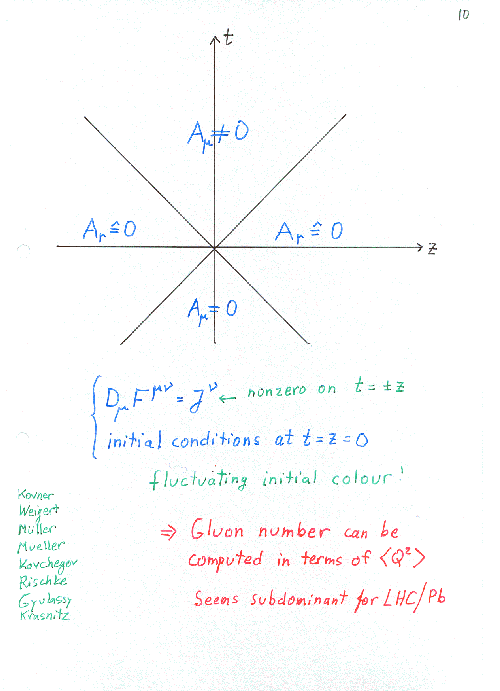 10
t
A_μ ≠ 0
A_μ ≙ 0
A_μ ≙ 0
z
A_μ = 0
D_μ F^{μν} = J^ν ← nonzero on t = ±z
initial conditions at t = z = 0
fluctuating initial colour!
Kovner
Weigert
Müller
Mueller
Kovchegov
Rischke
Gyulassy
Krasnitz
⇒ Gluon number can be
computed in terms of ⟨Q²⟩
Seems subdominant for LHC/Pb